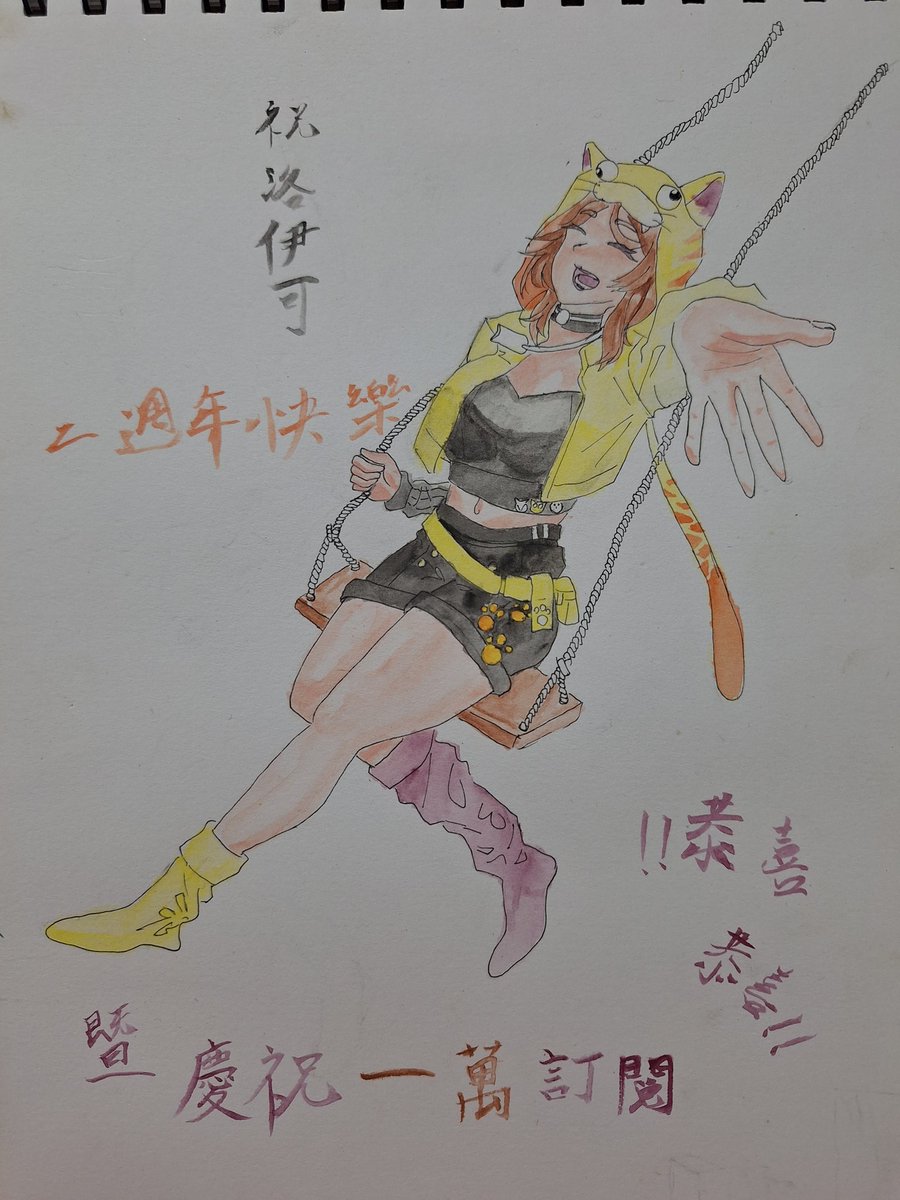 祝洛伊可
二週年快樂
!!恭喜
恭喜!!
暨
慶祝一萬訂閱